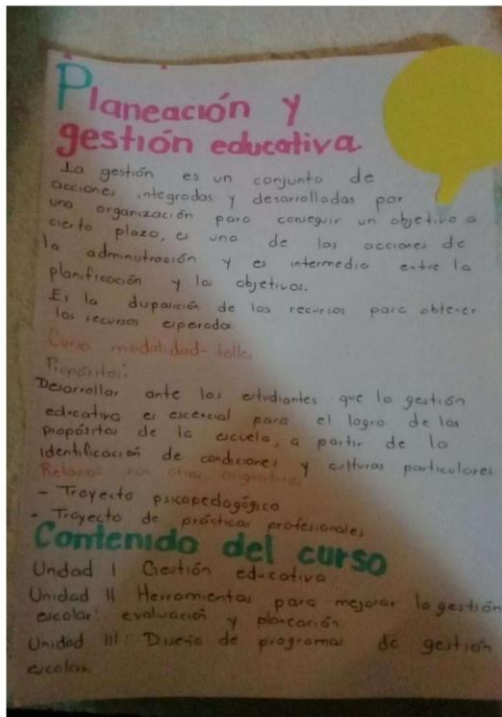 Planeación y
gestión educativa
La gestión es un conjunto de
acciones integradas y desarrolladas por
una organización para conseguir un objetivo a
cierto plazo, es una de las acciones de
la administración y es intermedia entre la
planificación y los objetivos.
Es la disposición de los recursos para obtener
los recursos esperados.
Curso modalidad-taller
Propósitos:
Desarrollar ante los estudiantes que la gestión
educativa es escencial para el logro de los
propósitos de la escuela, a partir de la
identificación de condiciones y culturas particulares
Relación con otras asignaturas
- Trayecto psicopedagógico
- Trayecto de prácticas profesionales
Contenido del curso
Unidad I Gestión educativa
Unidad II Herramientas para mejorar la gestión
escolar: evaluación y planeación
Unidad III: Diseño de programas de gestión
escolar.